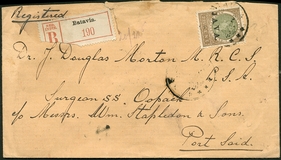 Registered
Batavia.
R
190
Dr. J. Douglas Morton M.R.C.S.
L.S.A.
Surgeon SS. Oopack
c/o Messrs. Wm. Stapledon & Sons.
Port Said.